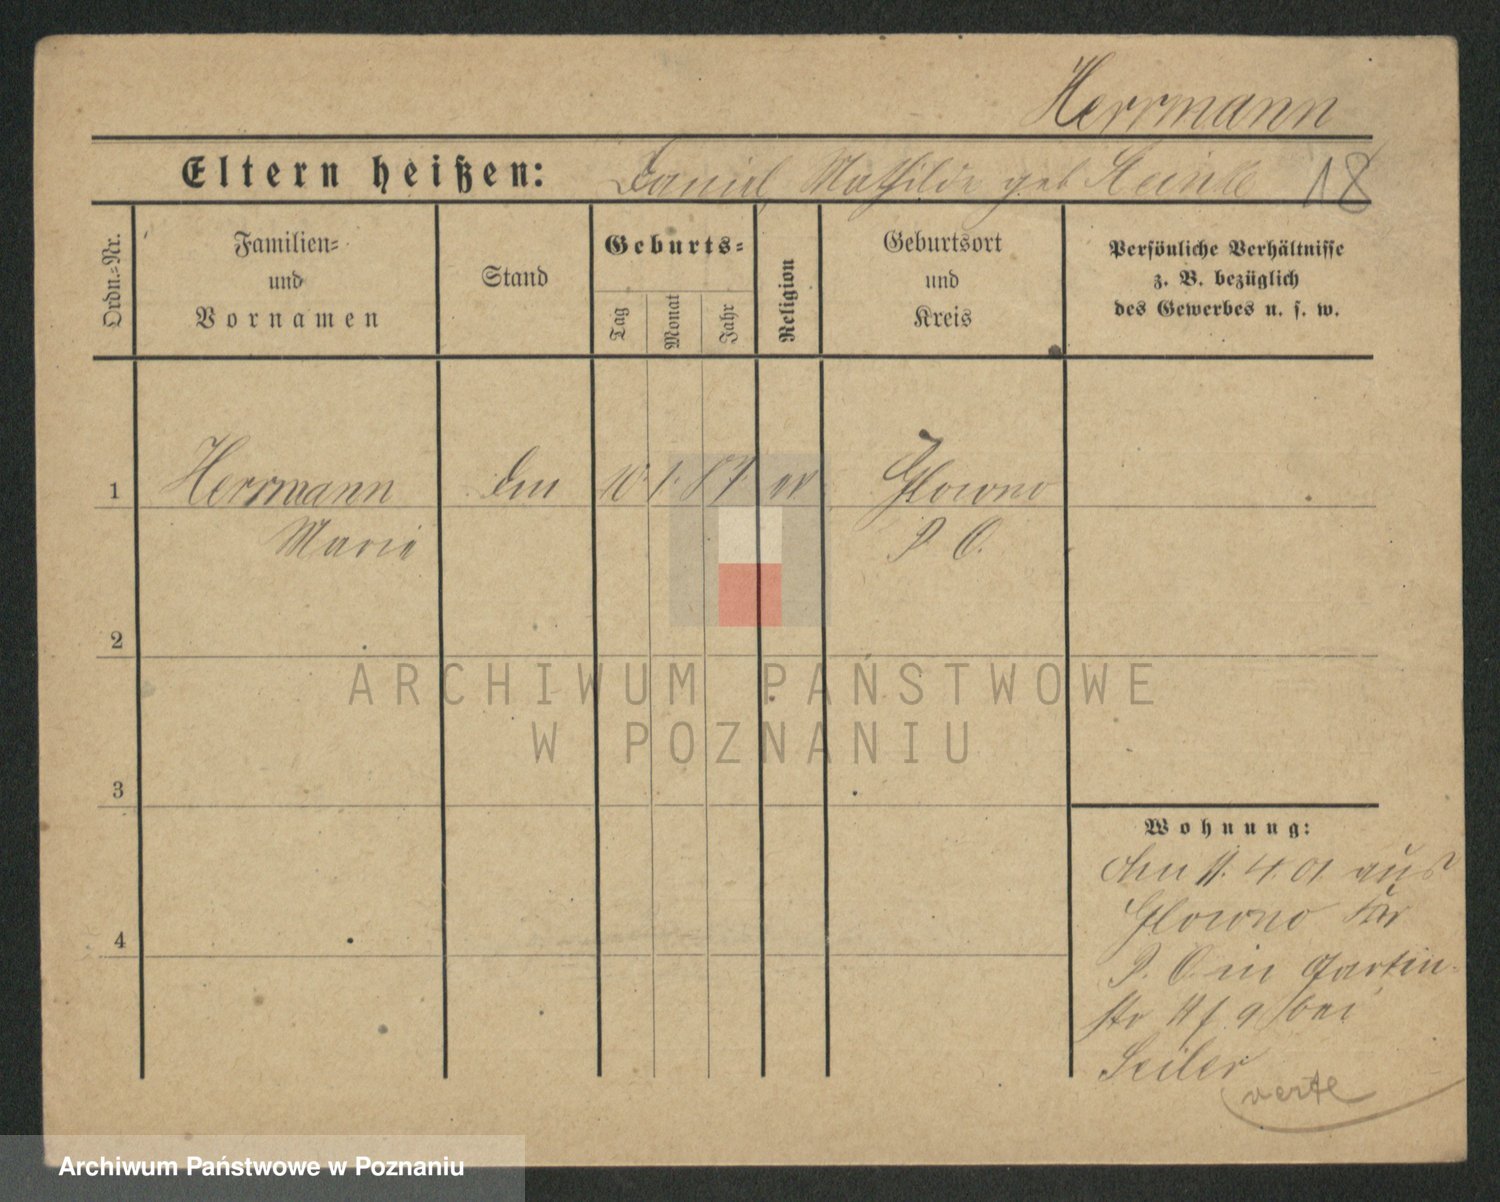 Herrmann
Eltern heißen: Daniel, Mathilde geb 18
Ordn.-Nr.
Familien-
und
Vornamen
Stand
Geburts-
Tag
Monat
Jahr
Religion
Geburtsort
und
Kreis
Persönliche Verhältnisse
z. B. bezüglich
des Gewerbes u. s. w.
1 Herrmann 10 1. 87. ev Glowno
Marie P. O.
2
3
4
Wohnung:
11. 4. 01 aus
Glowno Kr
P. O. in Garten-
str bei
Seiler
verte
ARCHIWUM PAŃSTWOWE
W POZNANIU
Archiwum Państwowe w Poznaniu